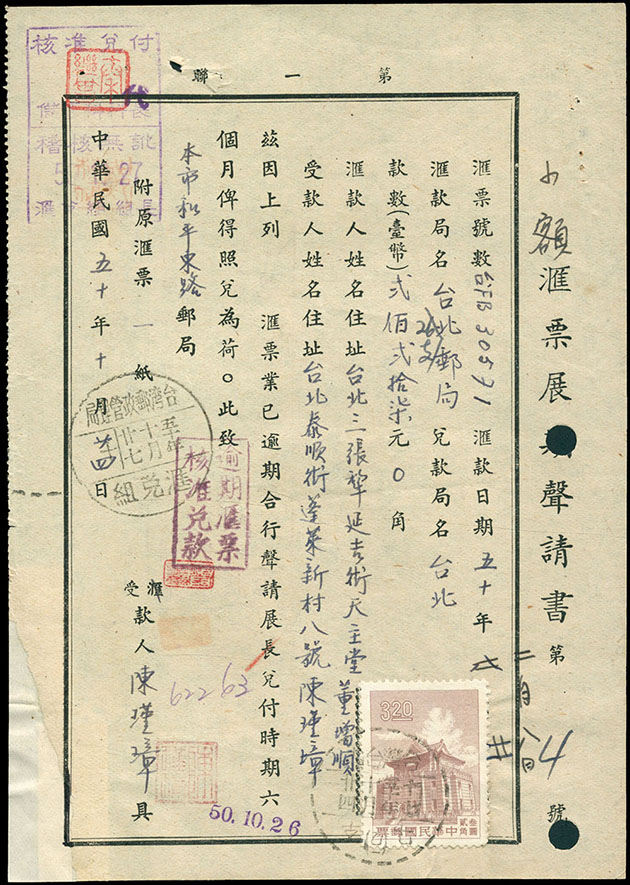 第一聯
小額匯票展期聲請書 第 4 號
匯票號數台FB 30571 匯款日期五十年二月八日
匯款局名台北郵局 26支 兌款局名台北
款數(臺幣)弍佰弍拾柒元0角
匯款人姓名住址台北三張犂延吉街天主堂董增順
受款人姓名住址台北泰順街蓬萊新村八號陳瑾璋
茲因上列 匯票業已逾期合行聲請展長兌付時期六
個月俾得照兌為荷。此致
本市和平東路郵局
附原匯票一紙
中華民國五十年十月 日
匯
受
款人陳瑾璋具
核准兌付
稽核無訛
27
台灣郵政管理局
五十年
十月
廿七
匯兌組
逾期匯票
核准兌款
622 63
50.10.26
320
中華民國郵票
叁圓
貳角